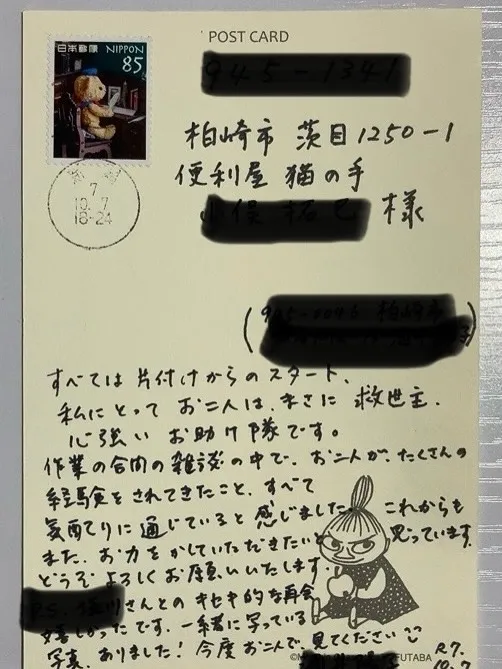 日本郵便 NIPPON
85
POST CARD
7
10.7
18-24
柏崎市 茨目1250-1
便利屋 猫の手
様
すべては片付けからのスタート、
私にとって お二人は、まさに 救世主。
心強い お助け隊です。
作業の合間の雑談の中で、お二人が、たくさんの
経験をされてきたこと、すべて
気配りに通じていると感じました。これからも
また、お力をかしていただきたいと思っています。
どうぞ よろしくお願いいたします。
さんとの キセキ的な再会
嬉しかったです。一緒に写っている
写真、ありました！今度お二人で見てください
R7.
FUTABA